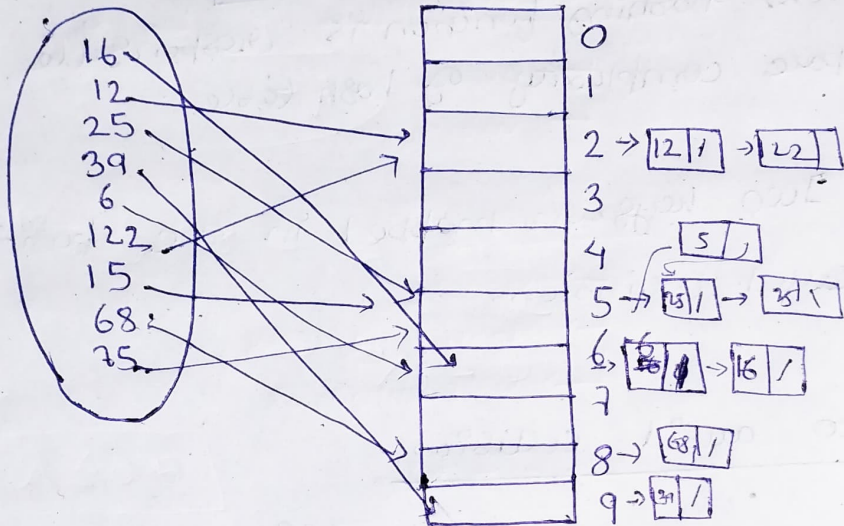 16
12
25
39
6
122
15
68
75
0
1
2 → 12 / → 122
3
4
5
5 → 25 / →
6 → 6 → 16 /
7
8 → 68 /
9 → 39 /